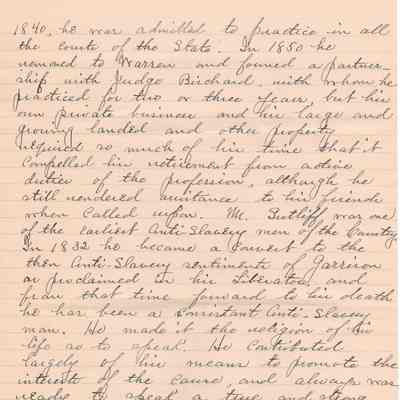 1840, he was admitted to practice in all
the courts of the State. In 1850 he
removed to Warren and formed a partner-
ship with Judge Birchard, with whom he
practiced for two or three years, but his
own private business and his large and
growing landed and other property
required so much of his time that it
compelled his retirement from active
duties of the profession, although he
still rendered assistance to his friends
when called upon. Mr. Sutliff was one
of the earliest Anti-Slavery men of the Country
In 1832 he became a convert to the
then Anti-Slavery sentiments of Garrison
as proclaimed in his Liberator, and
from that time forward to his death
he has been a consistant Anti-Slavery
man. He made it the religion of his
life so to speak. He contributed
largely of his means to promote the
interests of the cause, and always was
ready to speak a true and strong